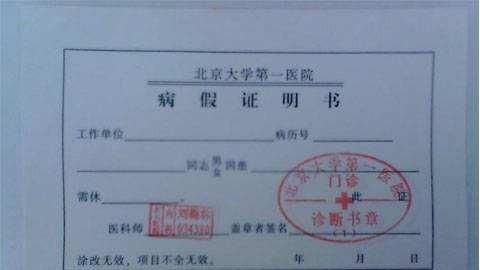 北京大学第一医院
病假证明书
工作单位 病历号
同志 男 女 因患
需休 此证
医科师 盖章者签名
年 月 日
涂改无效，项目不全无效。
北京大学第一医院
门诊
诊断书章
(1)
934380